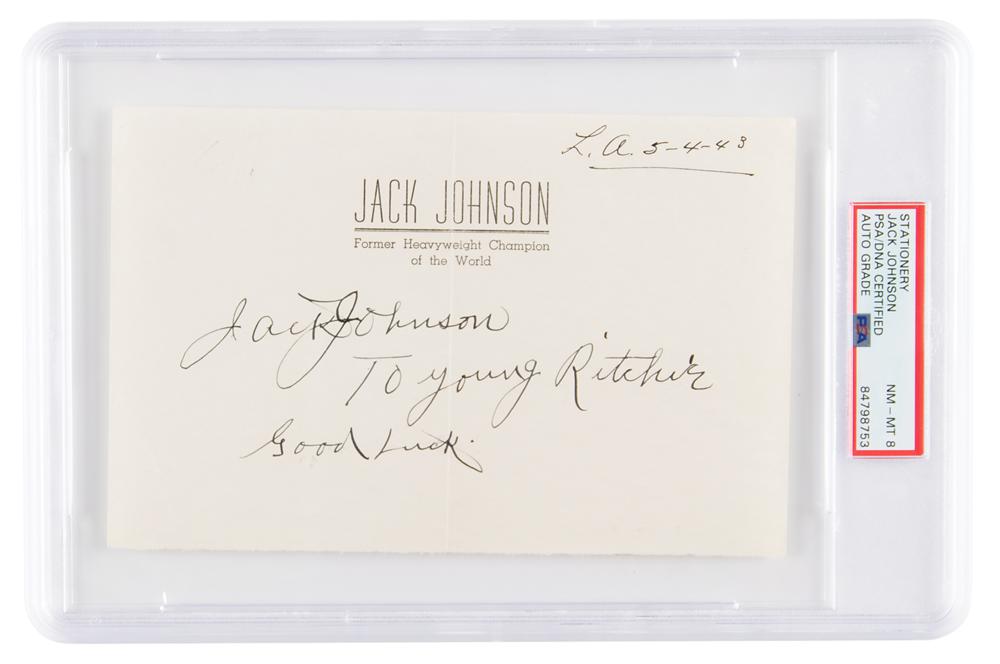 L.A. 5-4-43
JACK JOHNSON
Former Heavyweight Champion
of the World
Jack Johnson
To young Ritchie
Good Luck.
STATIONERY
JACK JOHNSON
PSA/DNA CERTIFIED
AUTO GRADE NM-MT 8
PSA 84798753